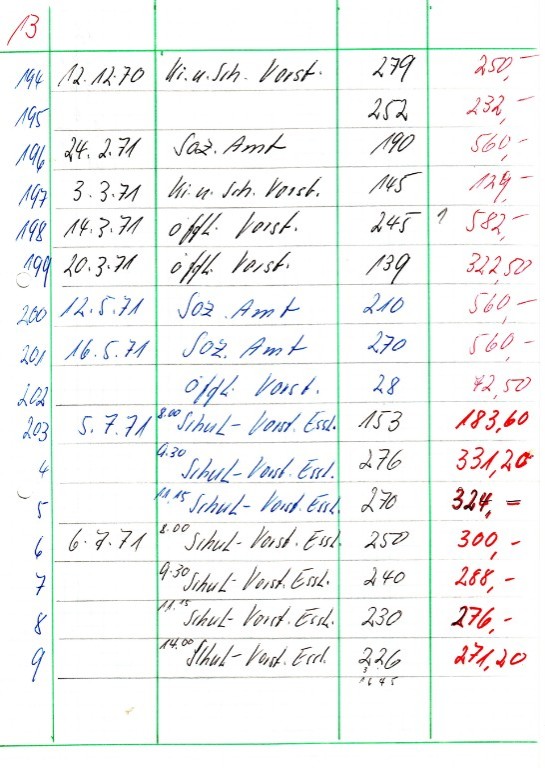 13
194 12.12.70 Ki.u.Sch. Vorst. 279 250,-
195 252 232,-
196 24.2.71 Soz. Amt 190 560,-
197 3.3.71 Ki.u.Sch. Vorst. 145 129,-
198 14.3.71 öffl. Vorst. 245 1 582,-
199 20.3.71 öffl. Vorst. 139 322,50
200 12.5.71 Soz. Amt 210 560,-
201 16.5.71 Soz. Amt 270 560,-
202 öffl. Vorst. 28 72,50
203 5.7.71 8.00 Schul-Vorst. Essl. 153 183,60
4 9.30 Schul-Vorst. Essl. 276 331,20
5 11.15 Schul-Vorst. Essl. 270 324,=
6 6.7.71 8.00 Schul-Vorst. Essl. 250 300,-
7 9.30 Schul-Vorst. Essl. 240 288,-
8 11.15 Schul-Vorst. Essl. 230 276,-
9 14.00 Schul-Vorst. Essl. 226 271,20
1645